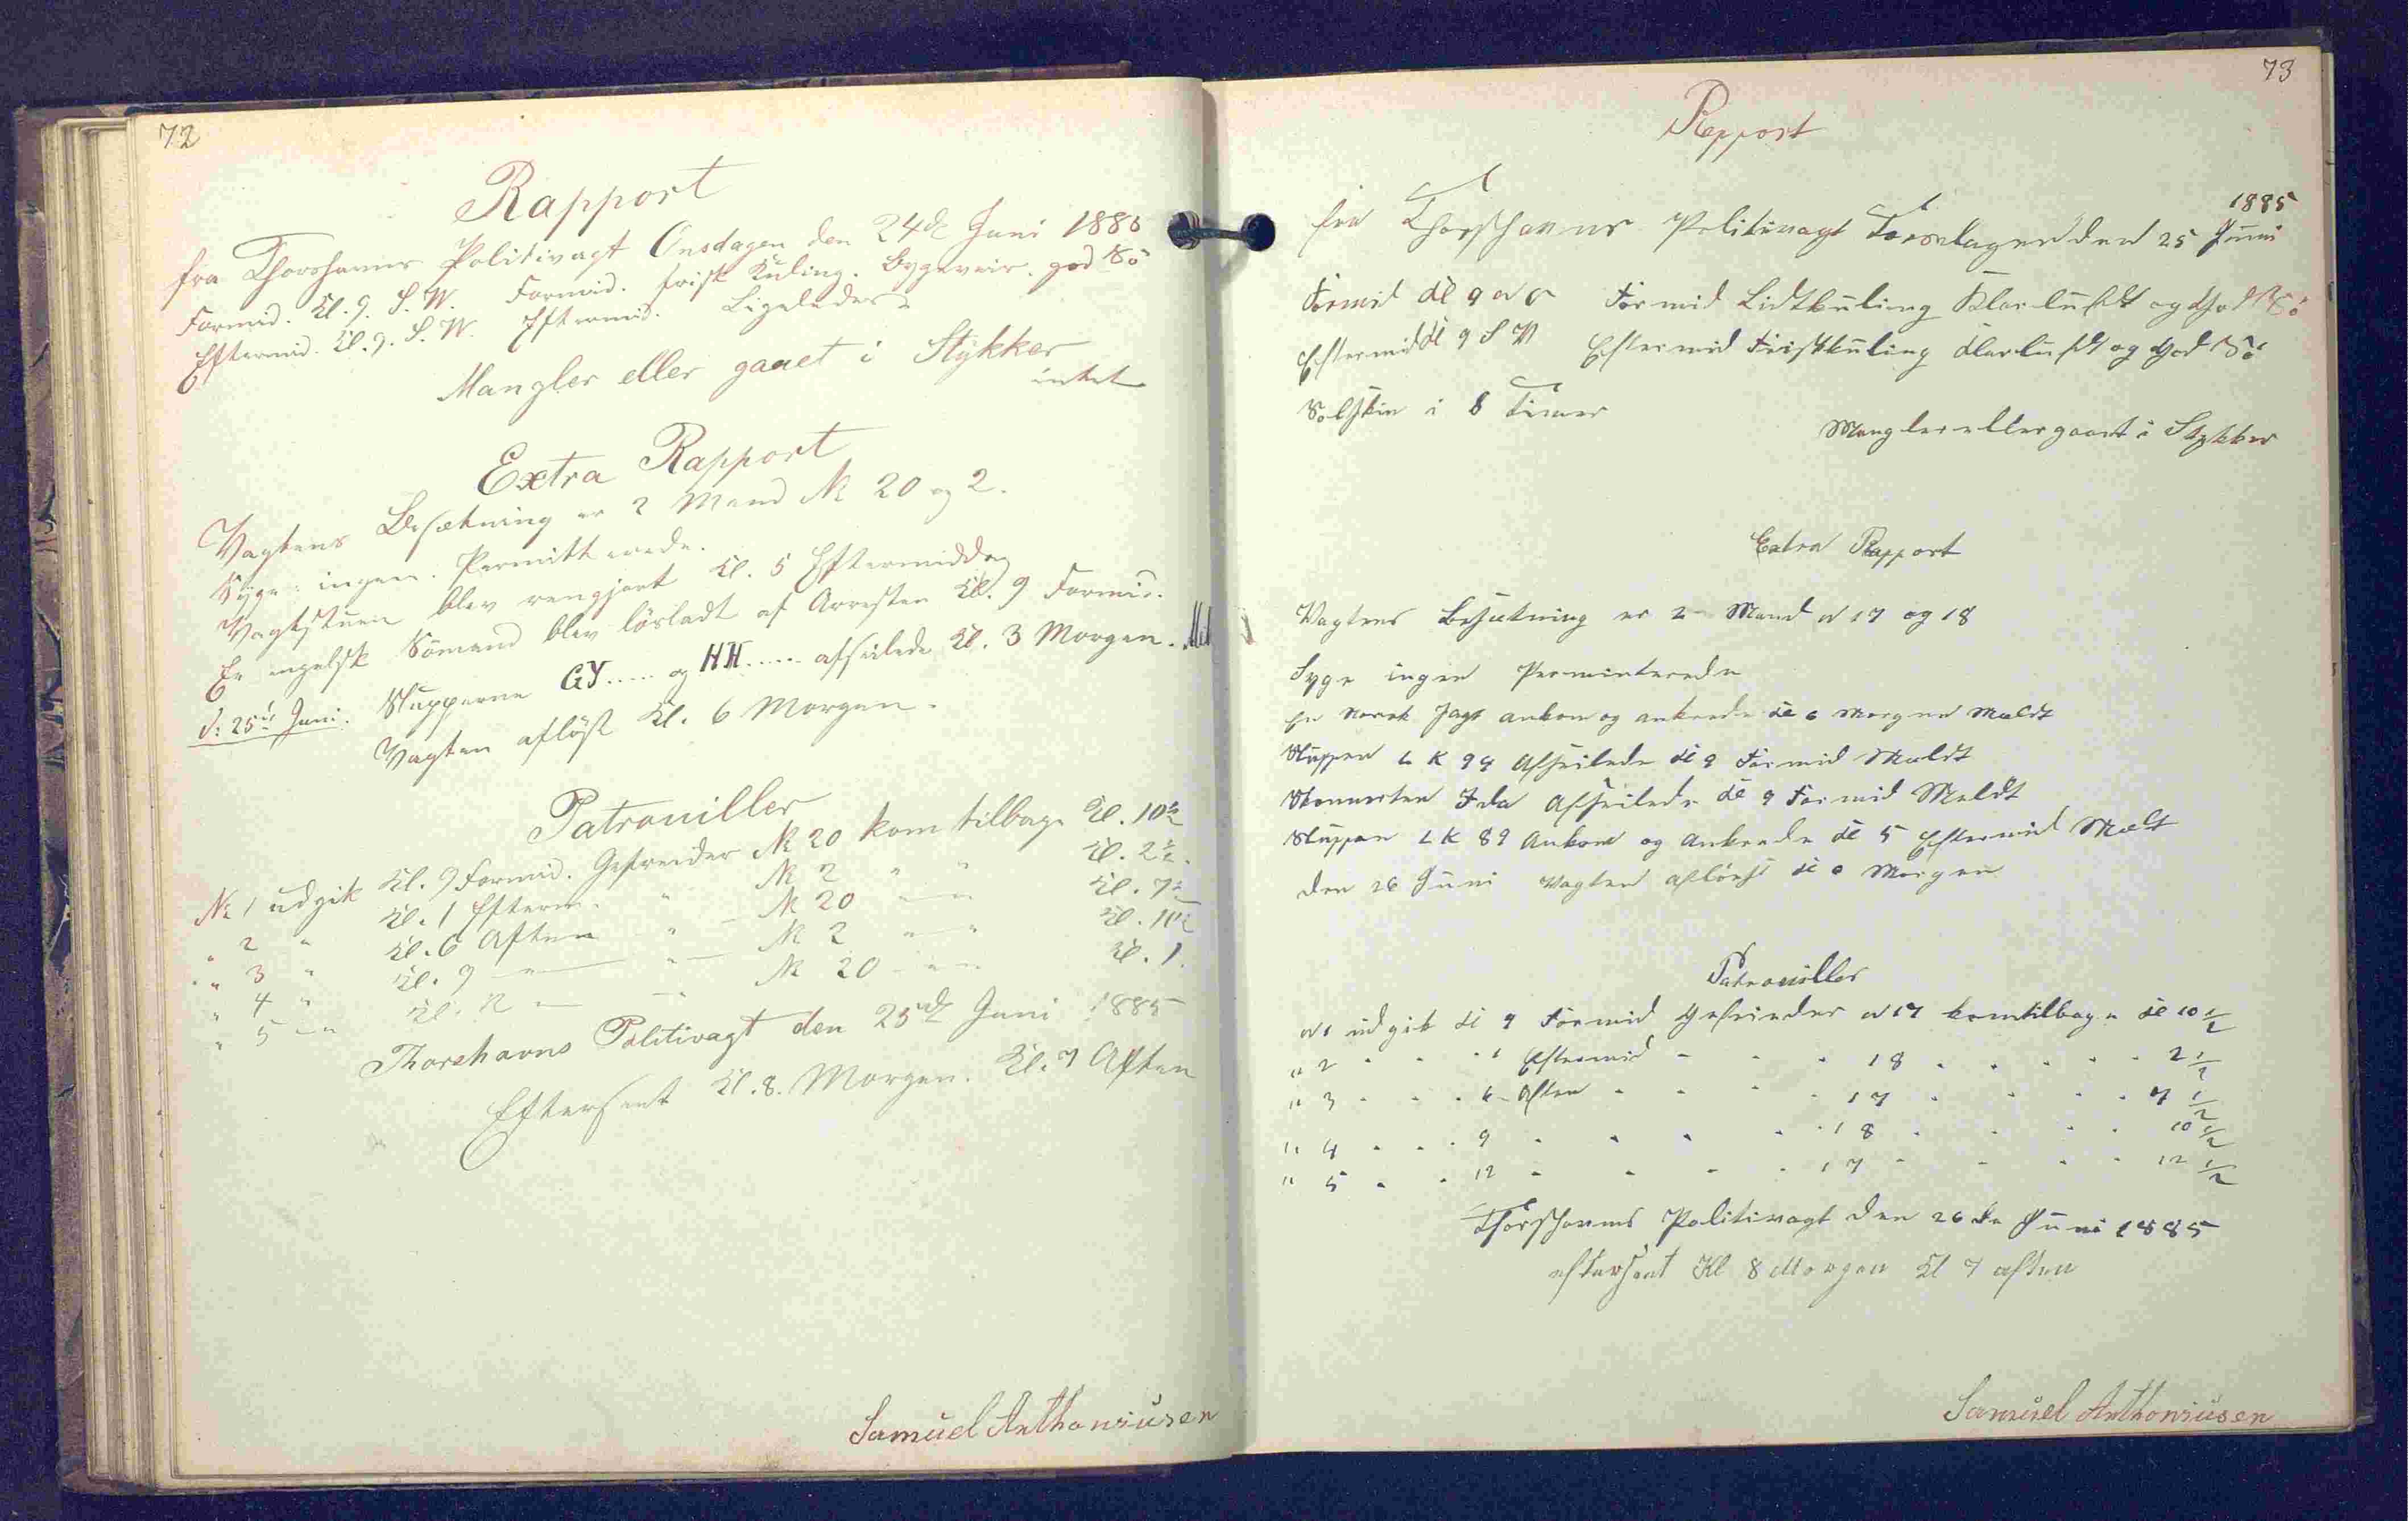 72
Rapport
fra Thorshavns Politivagt Onsdagen den 24de Juni 1885
Formid. Kl. 9. S. W. Formid. frisk Kuling. Bygeveir. god Sö
Eftermid. Kl. 9. S. W. Eftermid. Ligeledes
Mangler eller gaaet i Stykker
intet
Extra Rapport
Vagtens Besætning er 2 Mand № 20 og 2.
Syge: ingen. Permitterede.
Vagtstuen blev rengjort Kl. 5 Eftermiddag
En engelsk Sömand blev lösladt af Arresten Kl. 9 Formid.
d: 25de Juni. Slupperne GY..... og HH..... afseilede Kl. 3 Morgen.
Vagten aflöst Kl. 6 Morgen.
Patrouiller
№ 1 udgik Kl. 9 Formid. Gefreider № 20 kom tilbage Kl. 10½
" 2 " Kl. 1 Efterm. " № 2 " " Kl. 2½.
" 3 " Kl. 6 Aften " № 20 " " Kl. 7½
" 4 " Kl. 9 " " № 2 " " Kl. 10½
" 5 " Kl. 12 " № 20 " " Kl. 1.
Thorshavns Politivagt den 25de Juni 1885
Efterseet Kl. 8. Morgen. Kl. 7 Aften
Samuel Anthoniusen
73
Rapport
1885
fra Thorshavns Politivagt Torsdagen den 25 Juni
Formid Kl 9 Formid Lidtkuling Klarluft og God Sö
Eftermid Kl 9 S W Eftermid Friskkuling Klarluft og God Sö
Solskin i 8 Timer
Mangler eller gaaet i Stykker
Extra Rapport
Vagtens Besætning er 2 Mand № 17 og 18
Syge ingen Perminterede
En norsk Jagt ankom og ankrede Kl 6 Morgen Meldt
Sluppen L K 94 Afseilede Kl 9 Formid Meldt
Skonnerten Ida Afseilede Kl 9 Formid Meldt
Sluppen L K 89 Ankom og Ankrede Kl 5 Eftermid Melt
den 26 Juni Vagten aflöst Kl 6 Morgen
Patrouiller
№ 1 udgik Kl 9 Formid Gefreider № 17 kom tilbage Kl 10 ½
" 2 " " 1 Eftermid " " 18 " " 2 ½
" 3 " " 6 Aften " " 17 " " 7 ½
" 4 " " 9 " " " 18 " " 10 ½
" 5 " " 12 " " " 17 " " 12 ½
Thorshavns Politivagt den 26de Juni 1885
efterseet Kl 8 Morgen Kl 7 aften
Samuel Anthoniusen